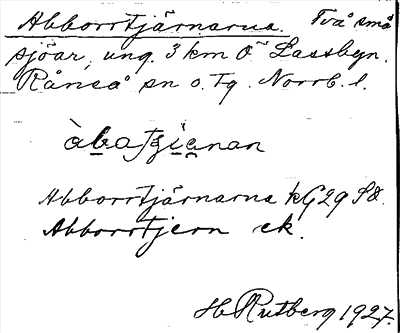 Abborrtjärnarna. Två små
sjöar, ung. 3 km Ö Lassbyn.
Råneå sn o. tg. Norrb. l.
Abborrtjärnarna kG29 SO.
Abborrtjern ek.
H Rutberg 1927.